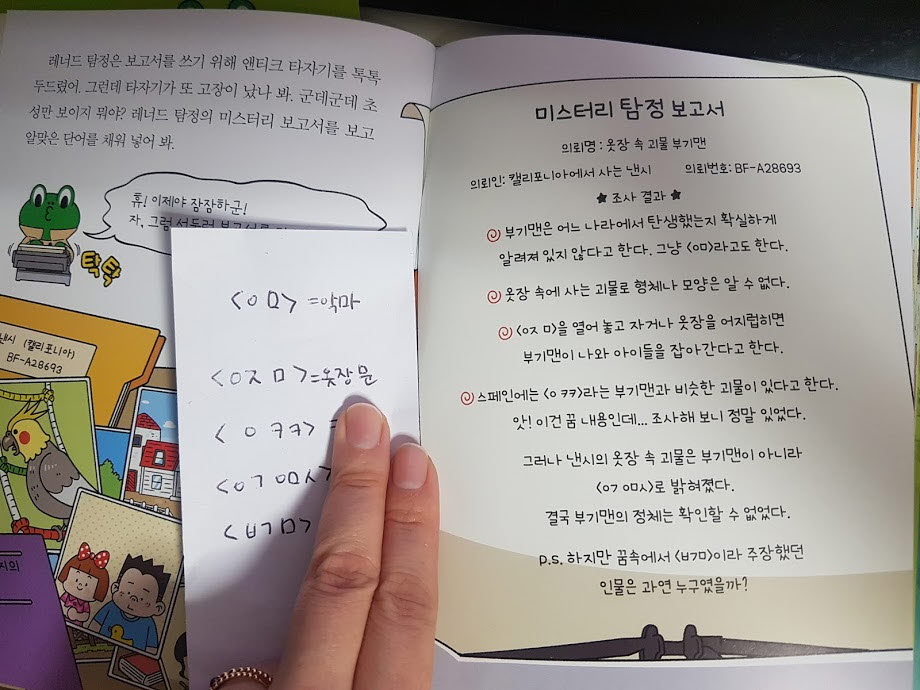 레너드 탐정은 보고서를 쓰기 위해 앤티크 타자기를 톡톡
두드렸어. 그런데 타자기가 또 고장이 났나 봐. 군데군데 초
성만 보이지 뭐야? 레너드 탐정의 미스터리 보고서를 보고
알맞은 단어를 채워 넣어 봐.
휴! 이제야 잠잠하군!
자, 그럼 서둘러 보고서를
탁탁
낸시 (캘리포니아)
BF-A28693
<ㅇ ㅁ> =악마
<ㅇㅈ ㅁ>=옷장 문
< ㅇ ㅋㅋ> =
<ㅇㄱ ㅇㅁㅅ>
<ㅂㄱㅁ>
미스터리 탐정 보고서
의뢰명 : 옷장 속 괴물 부기맨
의뢰인: 캘리포니아에서 사는 낸시 의뢰번호: BF-A28693
★ 조사 결과 ★
부기맨은 어느 나라에서 탄생했는지 확실하게
알려져 있지 않다고 한다. 그냥 <ㅇㅁ>라고도 한다.
옷장 속에 사는 괴물로 형체나 모양은 알 수 없다.
<ㅇㅈ ㅁ>을 열어 놓고 자거나 옷장을 어지럽히면
부기맨이 나와 아이들을 잡아간다고 한다.
스페인에는 <ㅇ ㅋㅋ>라는 부기맨과 비슷한 괴물이 있다고 한다.
앗! 이건 꿈 내용인데... 조사해 보니 정말 있었다.
그러나 낸시의 옷장 속 괴물은 부기맨이 아니라
<ㅇㄱ ㅇㅁㅅ>로 밝혀졌다.
결국 부기맨의 정체는 확인할 수 없었다.
P.S. 하지만 꿈속에서 <ㅂㄱㅁ>이라 주장했던
인물은 과연 누구였을까?